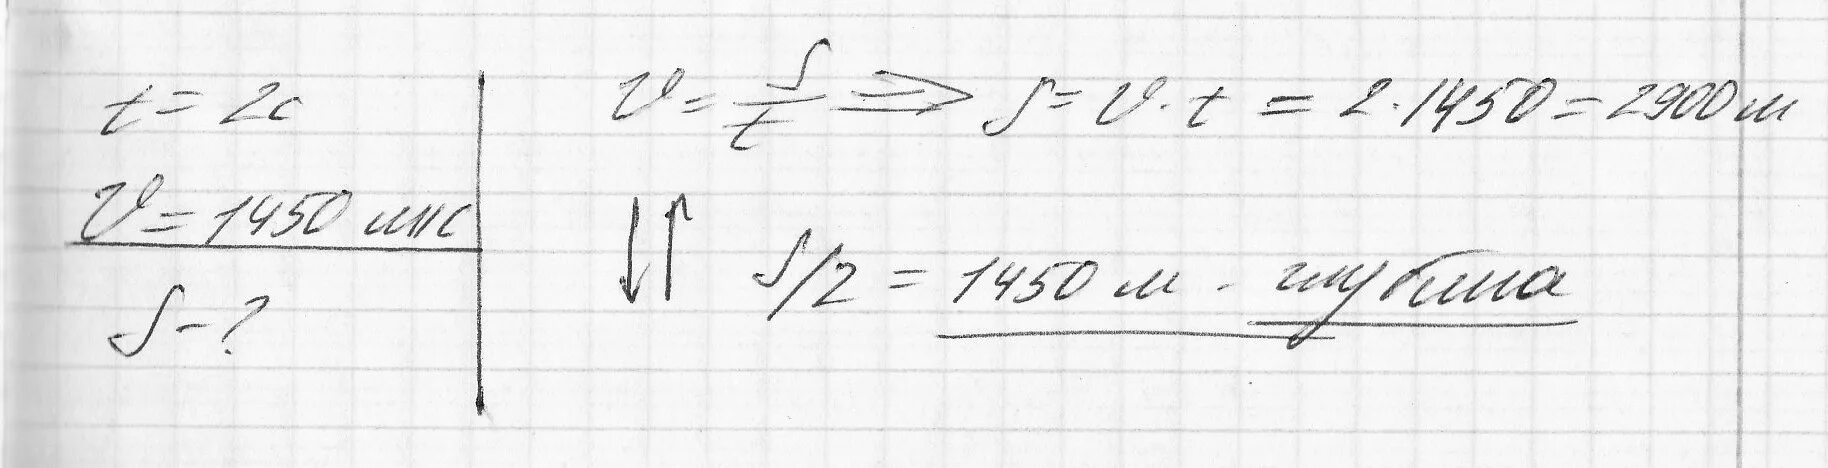 t = 2с
V = 1450 м/с
S - ?
V = S/t => S = V · t = 2 · 1450 = 2900 м
↓↑ S/2 = 1450 м - глубина